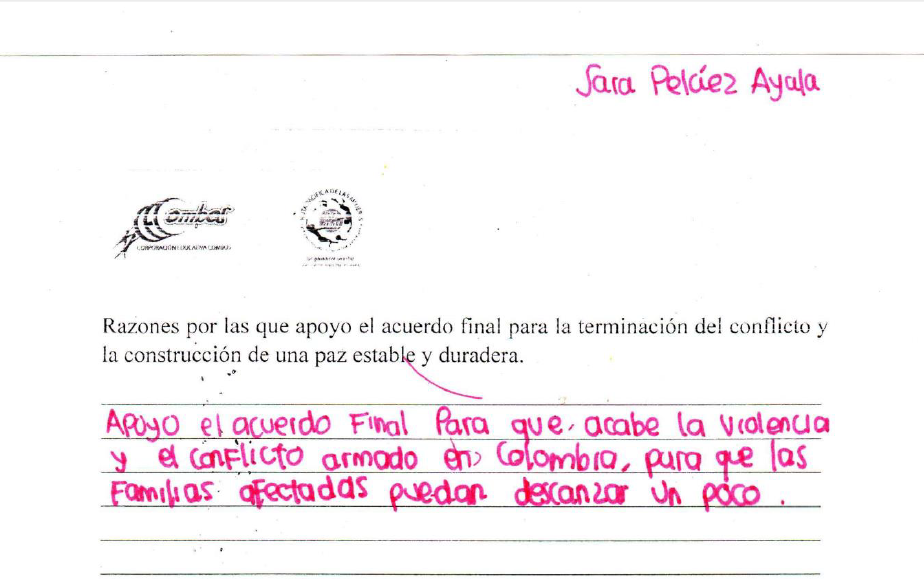 Sara Peláez Ayala
Combos
CORPORACIÓN EDUCATIVA COMBOS
Razones por las que apoyo el acuerdo final para la terminación del conflicto y
la construcción de una paz estable y duradera.
Apoyo el acuerdo Final Para que acabe la violencia
y el conflicto armado en Colombia, para que las
Familias afectadas puedan descanzar un poco.